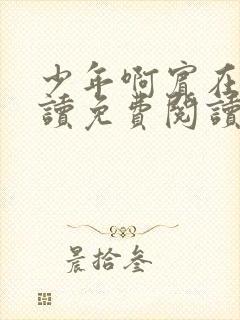 少年啊宾在
讀免費閱讀
晨拾叁